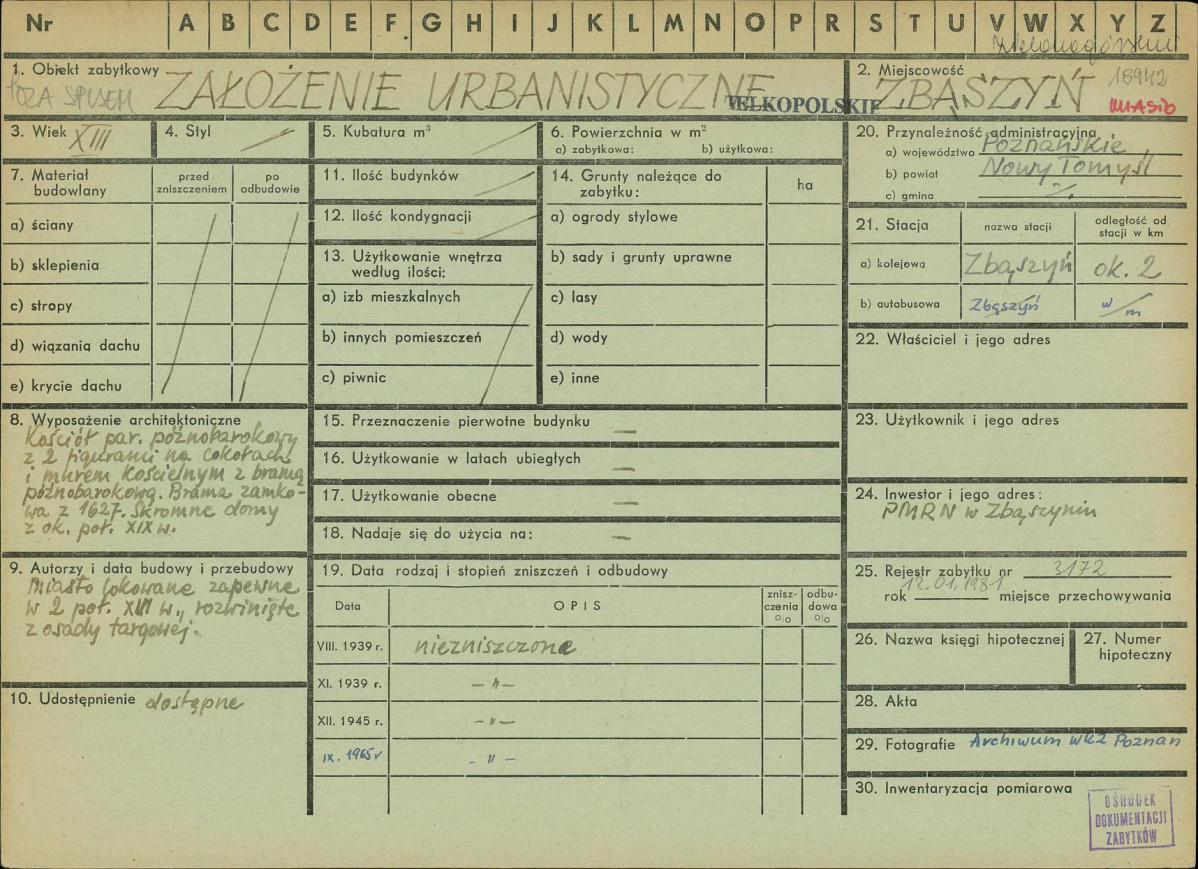 Nr A B C D E F G H I J K L M N O P R S T U V W X Y Z
zielonogórskie
1. Obiekt zabytkowy
POZA SPISEM
ZAŁOŻENIE URBANISTYCZNE
WIELKOPOLSKIE
2. Miejscowość
ZBĄSZYŃ
18942
MIASTO
3. Wiek
XIII
4. Styl
5. Kubatura m³
6. Powierzchnia w m²
a) zabytkowa: b) użytkowa:
7. Materiał budowlany
przed zniszczeniem
po odbudowie
a) ściany
b) sklepienia
c) stropy
d) wiązania dachu
e) krycie dachu
11. Ilość budynków
12. Ilość kondygnacji
13. Użytkowanie wnętrza
według ilości:
a) izb mieszkalnych
b) innych pomieszczeń
c) piwnic
14. Grunty należące do
zabytku:
ha
a) ogrody stylowe
b) sady i grunty uprawne
c) lasy
d) wody
e) inne
20. Przynależność administracyjna
a) województwo Poznańskie
b) powiat Nowy Tomyśl
c) gmina
21. Stacja
nazwa stacji
odległość od
stacji w km
a) kolejowa Zbąszyń ok. 2
b) autobusowa Zbąszyń w/m
22. Właściciel i jego adres
8. Wyposażenie architektoniczne
Kościół par. późnobarokowy
z 2 figurami na cokołach
i murem kościelnym z bramą
późnobarokową. Brama zamko-
wa z 1627. Skromne domy
z ok. poł. XIX w.
9. Autorzy i data budowy i przebudowy
Miasto lokowane zapewne
w 2 poł. XIII w., rozwinięte
z osady targowej.
10. Udostępnienie dostępne
15. Przeznaczenie pierwotne budynku —
16. Użytkowanie w latach ubiegłych —
17. Użytkowanie obecne —
18. Nadaje się do użycia na: —
19. Data rodzaj i stopień zniszczeń i odbudowy
Data
OPIS
znisz-
czenia
%
odbu-
dowa
%
VIII. 1939 r. niezniszczone
XI. 1939 r. — " —
XII. 1945 r. — " —
IX. 1965 r — " —
23. Użytkownik i jego adres
24. Inwestor i jego adres:
PMRN w Zbąszyniu
25. Rejestr zabytku nr 3172
rok 12.01.1981 miejsce przechowywania
26. Nazwa księgi hipotecznej
27. Numer
hipoteczny
28. Akta
29. Fotografie Archiwum WKZ Poznań
30. Inwentaryzacja pomiarowa
OŚRODEK
DOKUMENTACJI
ZABYTKÓW